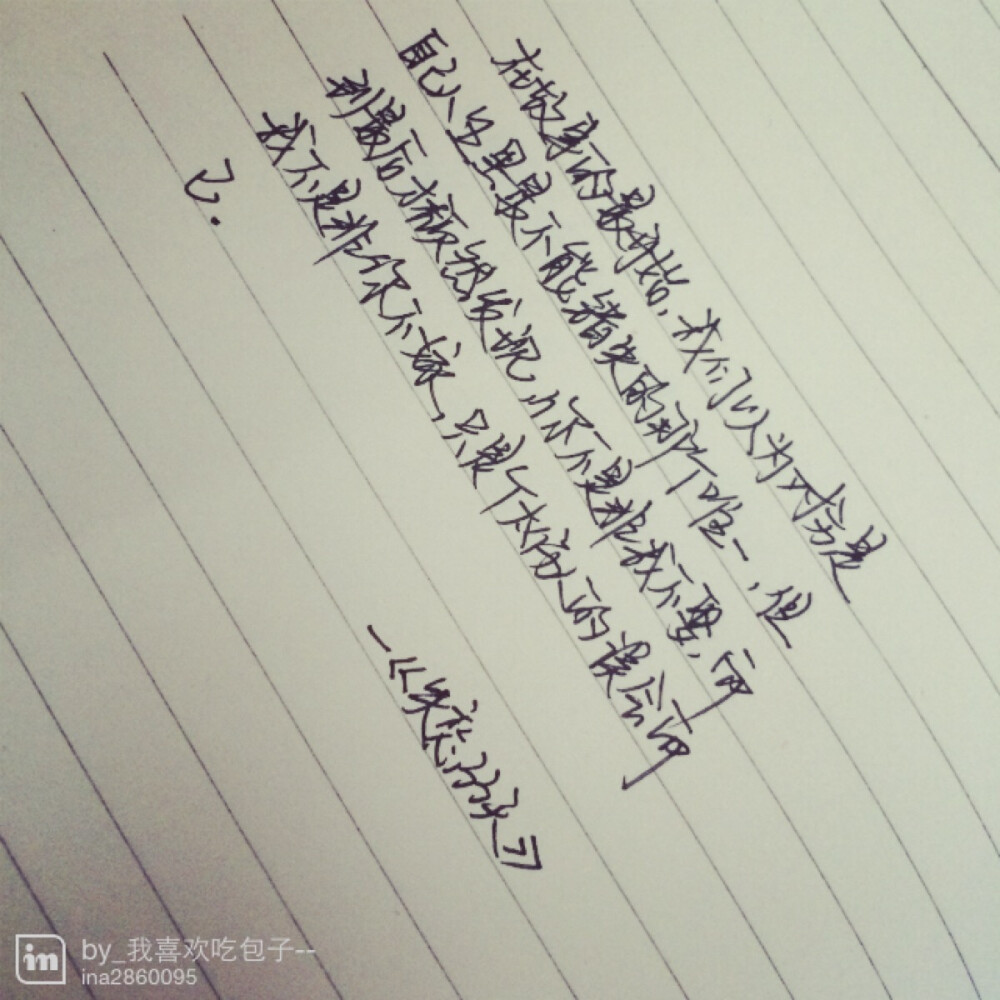 在故事的最开始，我们以为对方是
自己人生里最不能错失的那个唯一，但
到最后才板然发现，你不是非我不要，而
我不是非你不嫁，只是个太深的误会而
已.
—《失恋33天》
by_我喜欢吃包子--
ina2860095